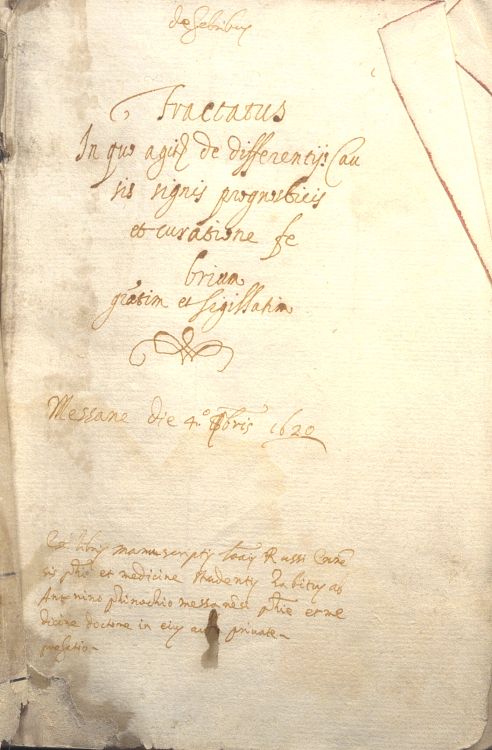 de febribus
Tractatus
In quo agit de differentijs Cau
sis signis prognosticis
et curatione fe
brium
gratim et sigillatim
Messane die 4.º 1620
Ex libris manuscriptis Russi
sis phie et medicine studentis habitus ab
Antonino messanesi phie et me
dicine doctore in eius private